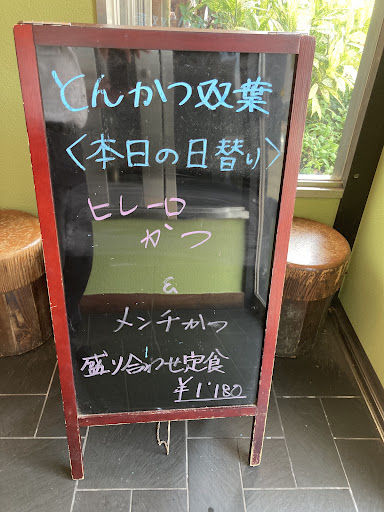 とんかつ双葉
〈本日の日替り〉
ヒレ一口
かつ
&
メンチかつ
盛り合わせ定食
¥1'180